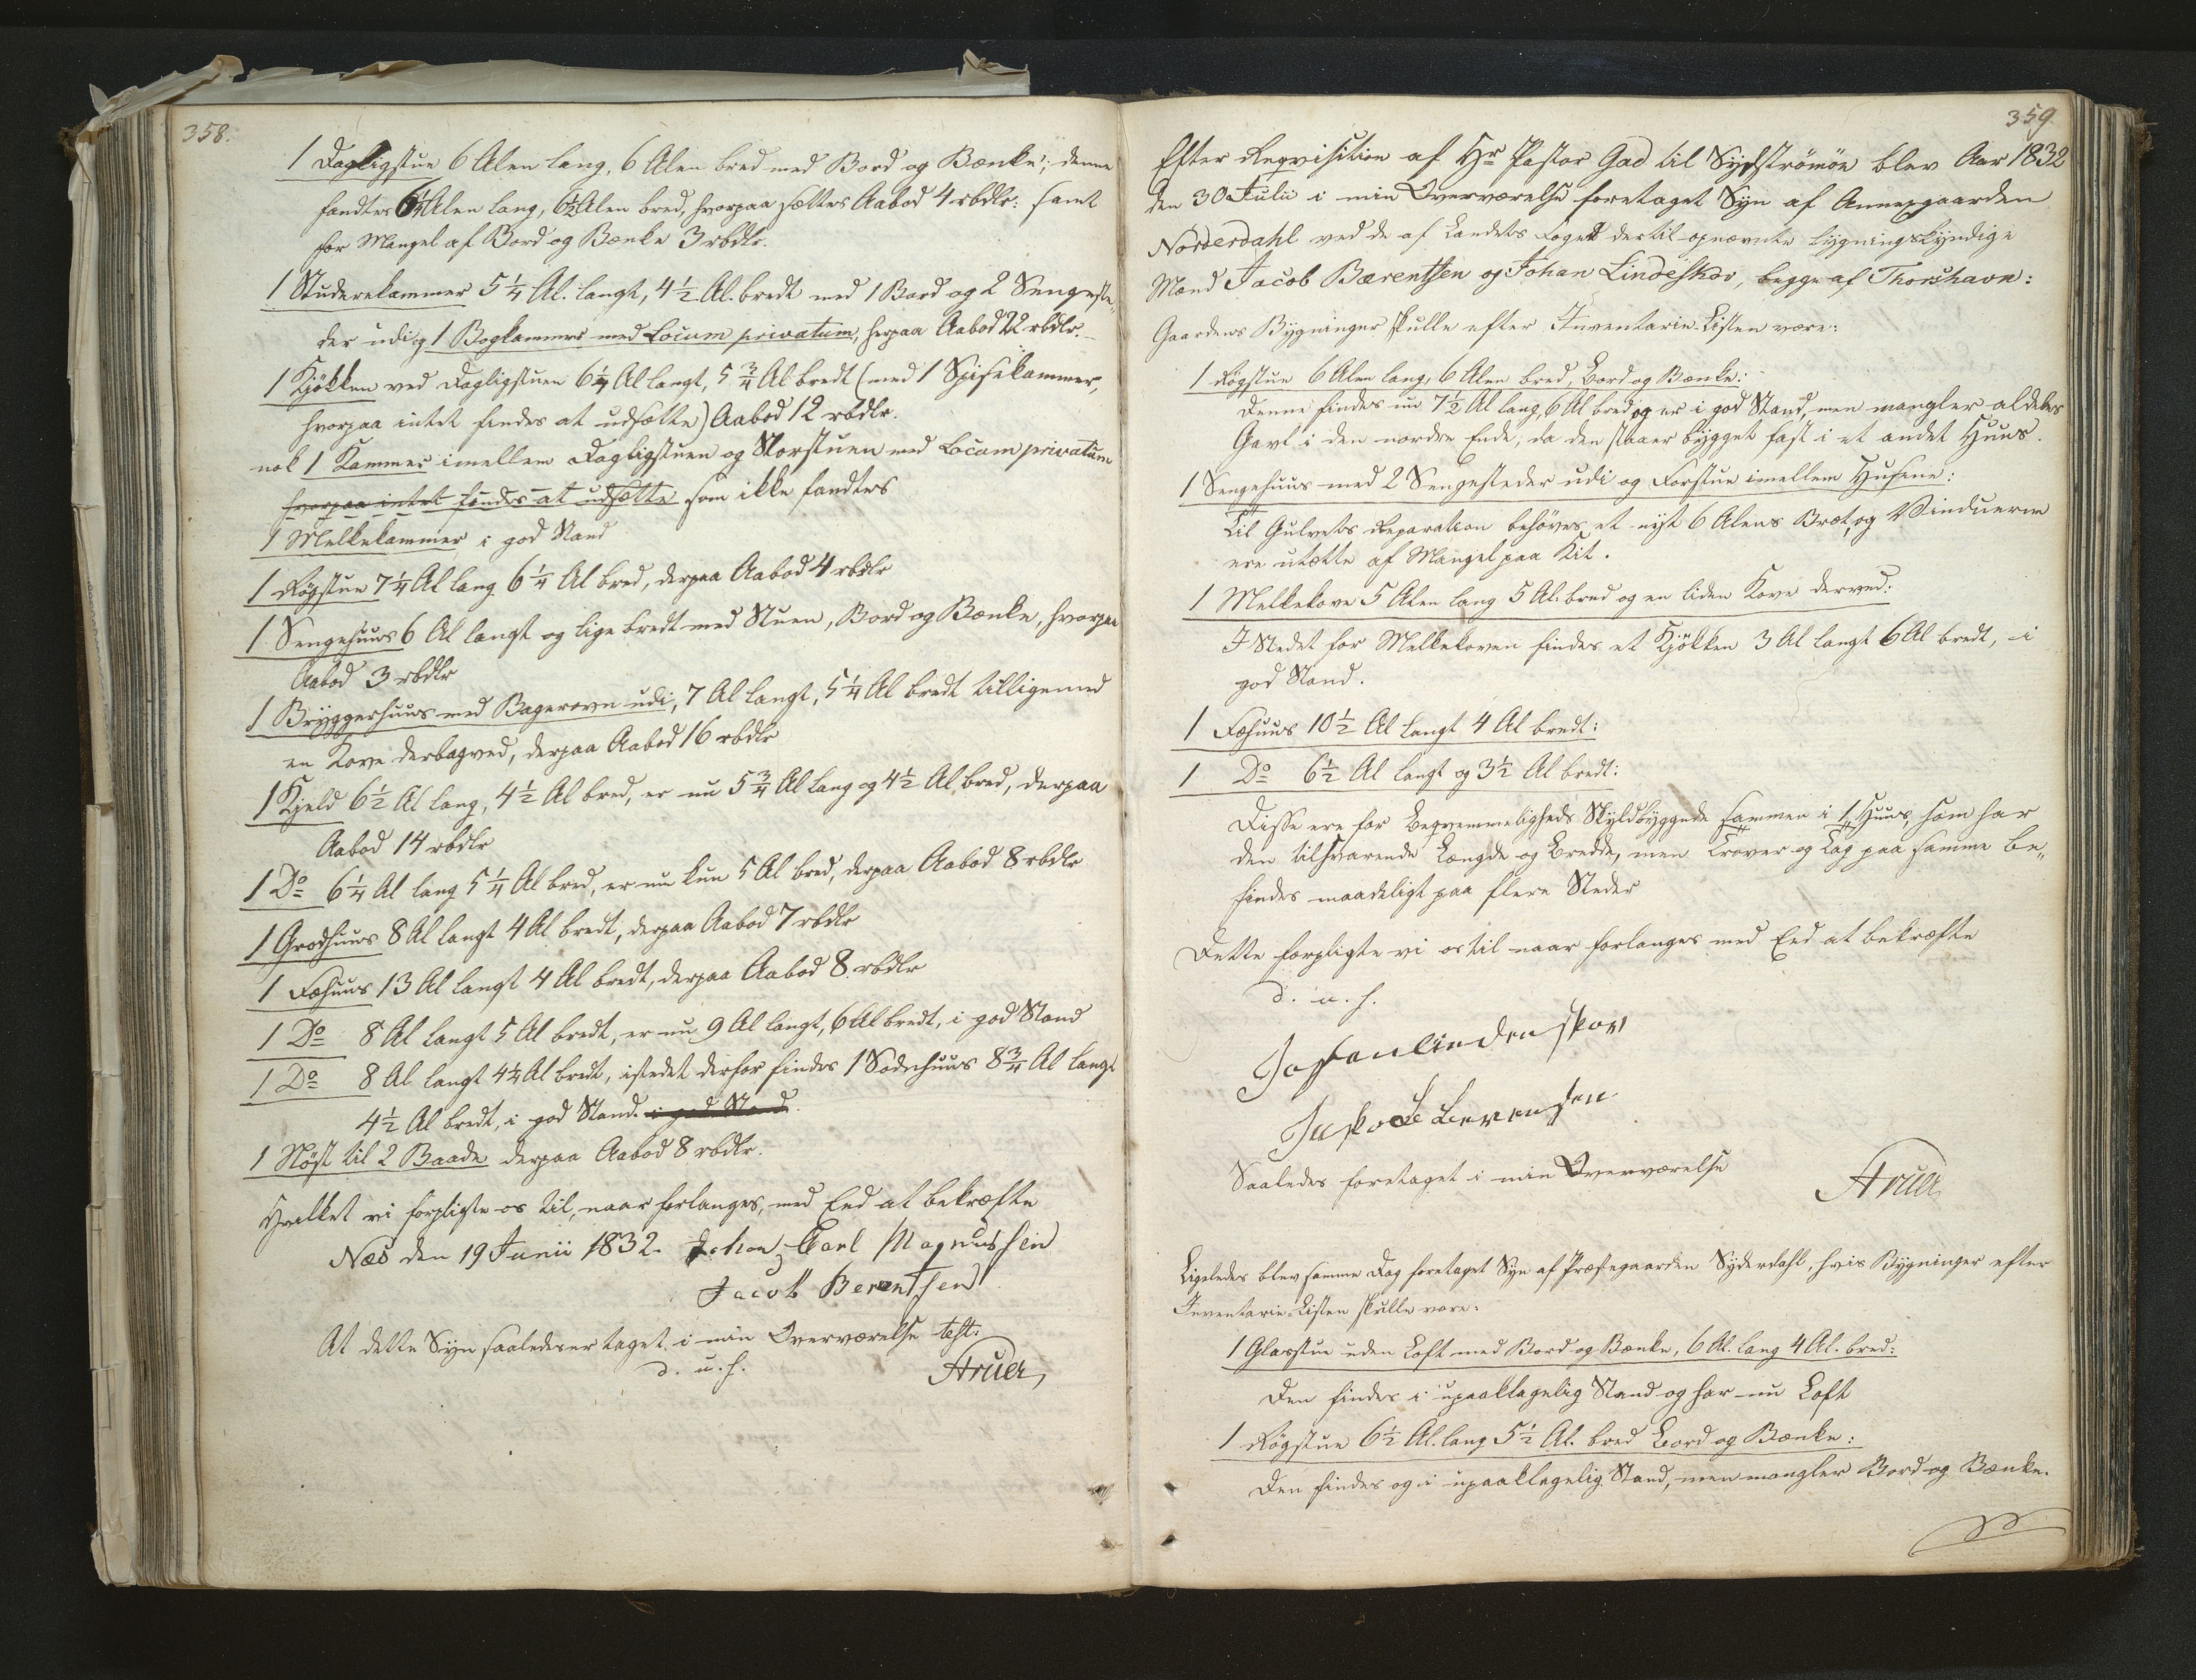 358.
1 Dagligstue 6 Alen lang, 6 Alen bred med Bord og Bænke; denne
fandtes 6¼ Alen lang, 6½ Alen bred, hvorpaa sættes Aabod 4 rbdlr: samt
for Mangel af Bord og Bænke 3 rbdlr.
1 Studerekammer 5¼ Al. langt, 4½ Al. bredt med 1 Bord og 2 Sengeste„
der udi og 1 Bogkammer med Locum privatum, herpaa Aabod 22 rbdlr.
1 Kjökken ved Dagligstuen 6¼ Al langt, 5¾ Al bredt (med 1 Spisekammer,
hvorpaa intet findes at udsætte) Aabod 12 rbdlr.
nok 1 Kammer imellem Dagligstuen og Storstuen med Locum privatum
hvorpaa intet findes at udsætte som ikke fandtes
1 Melkekammer i god Stand
1 Rögstue 7¼ Al lang 6¼ Al bred, derpaa Aabod 4 rbdlr
1 Sengehuus 6 Al langt og lige bredt med Stuen, Bord og Bænke, hvorpaa
Aabod 3 rbdlr
1 Bryggerhuus med Bagerovn udi, 7 Al langt, 5¼ Al bredt tilligemed
en Kove derbagved, derpaa Aabod 16 rbdlr
1 Kjeld 6½ Al lang, 4½ Al bred, er nu 5¾ Al lang og 4½ Al bred, derpaa
Aabod 14 rbdlr
1 Do 6¼ Al lang 5¼ Al bred, er nu kun 5 Al bred, derpaa Aabod 8 rbdlr
1 Grodhuus 8 Al langt 4 Al bredt, derpaa Aabod 7 rbdlr
1 Fæhuus 13 Al langt 4 Al bredt, derpaa Aabod 8 rbdlr
1 Do 8 Al langt 5 Al bredt, er nu 9 Al langt, 6 Al bredt, i god Stand
1 Do 8 Al langt 4¼ Al bredt, istedet derfor findes 1 Sodnhuus 8¾ Al langt
4½ Al bredt, i god Stand i god Stand.
1 Nöst til 2 Baade derpaa Aabod 8 rbdlr.
Hvilket vi forpligte os til, naar forlanges, med Eed at bekræfte
Næs den 19 Junii 1832. Johan Carl Magnussen
Jacob Berentsen
At dette Syn saaledes er taget i min Overværelse test:
d. u. s.
359
Efter Reqvisition af Hr Pastor Gad til Sydströmöe blev Aar 1832
den 30 Julii i min Overværelse foretaget Syn af Annexgaarden
Norderdahl ved de af Landets Foged dertil opnævnte bygningskyndige
Mænd Jacob Bærentsen og Johan Lindeskov, begge af Thorshavn:
Gaardens Bygninger skulle efter Inventarie-Listen være:
1 Rögstue 6 Alen lang, 6 Alen bred, Bord og Bænke:
Denne findes nu 7½ Al lang, 6 Al bred og er i god Stand, men mangler aldeles
Gavl i den nordre Ende, da den staaer bygget fast i et andet Huus.
1 Sengehuus med 2 Sengesteder udi og Forstue imellem Husene:
Til Gulvets Reparation behöves et nyt 6 Alens Bræt, og Vinduerne
ere utætte af Mangel paa Kit.
1 Melkekove 5 Alen lang 5 Al. bred og en liden Kove derved:
I Stedet for Melkekoven findes et Kjökken 3 Al langt 6 Al bredt, i
god Stand.
1 Fæhuus 10½ Al langt 4 Al bredt:
1 Do 6½ Al langt og 3½ Al bredt:
Disse ere for Beqvemmeligheds Skyld byggede sammen i 1 Huus, som har
den tilsvarende Længde og Bredde, men Trover og Tag paa samme be„
findes maadeligt paa flere Steder
Dette forpligte vi os til naar forlanges med Eed at bekræfte
d. u. s.
Johan lindenskov
Jakob Berensen
Saaledes foretaget i min Overværelse
Ligeledes blev samme Dag foretaget Syn af Præstegaarden Syderdahl, hvis Bygninger efter
Inventarie-Listen skulle være:
1 Glasstue uden Loft med Bord og Bænke, 6 Al. lang 4 Al. bred:
Den findes i upaaklagelig Stand og har nu Loft
1 Rögstue 6½ Al. lang 5½ Al. bred Bord og Bænke:
Den findes og i upaaklagelig Stand, men mangler Bord og Bænke.